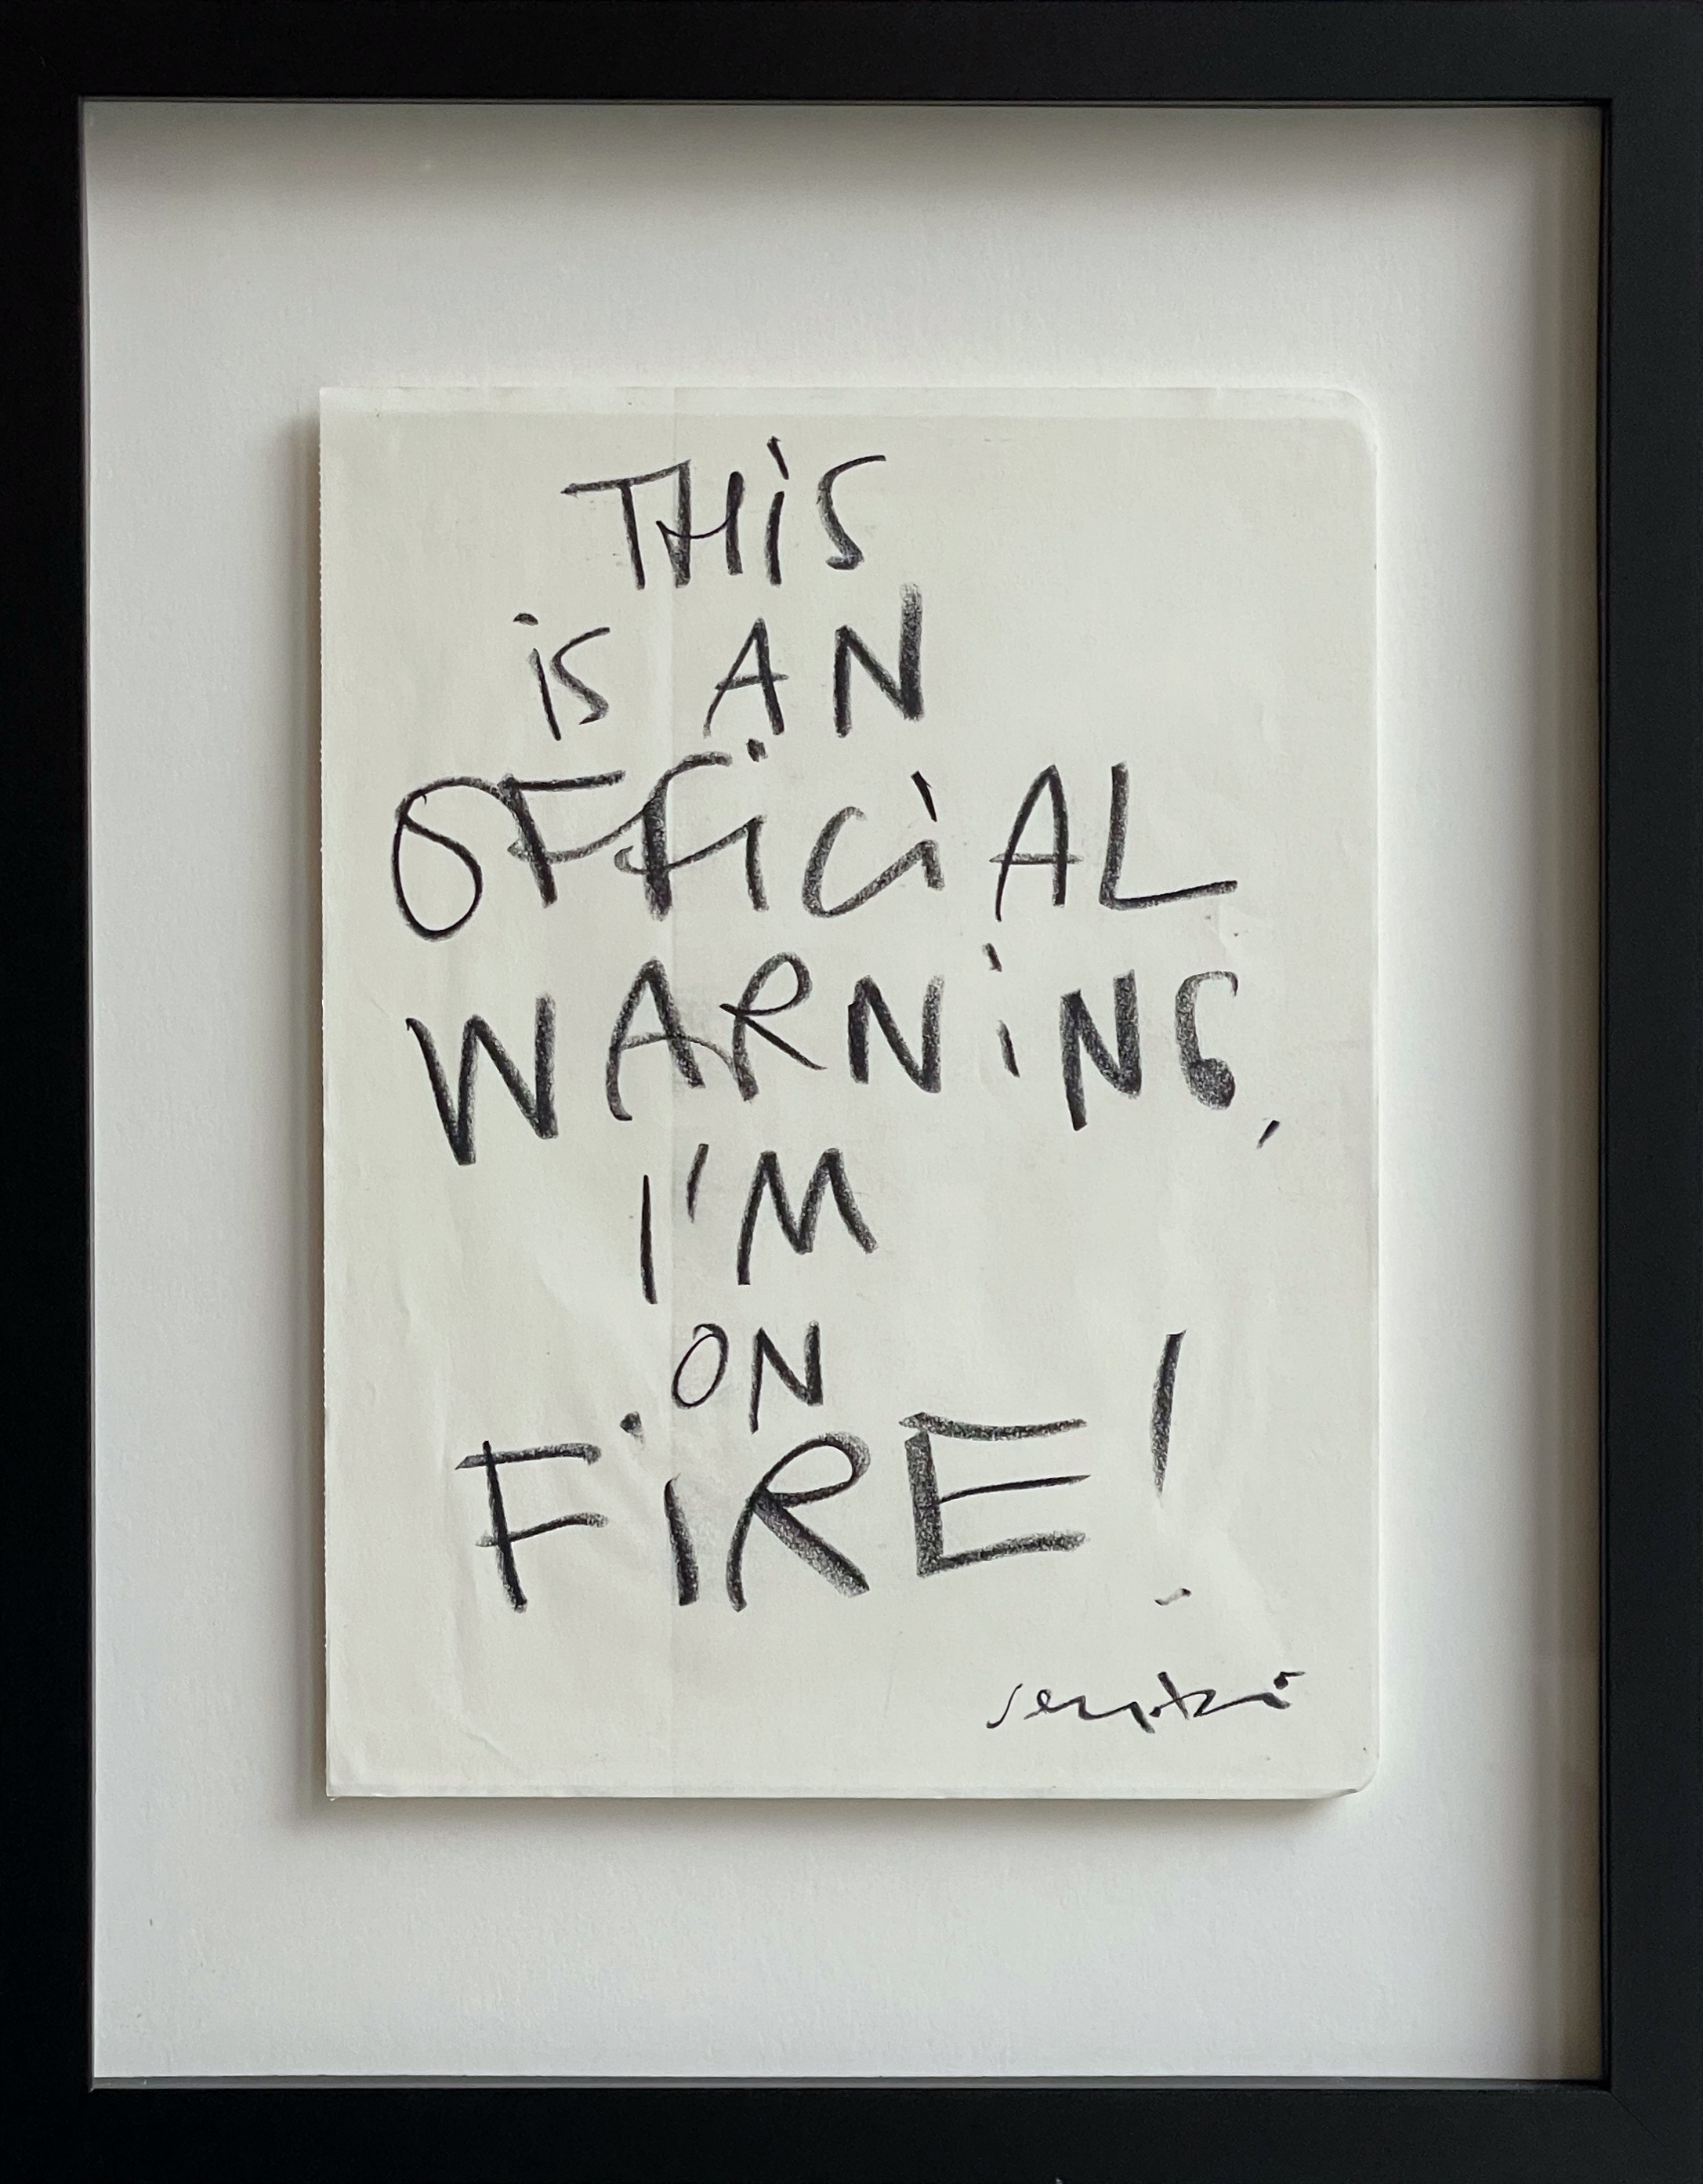 THiS
iS AN
OFFiCiAL
WARNiNG,
I'M
ON
FiRE!